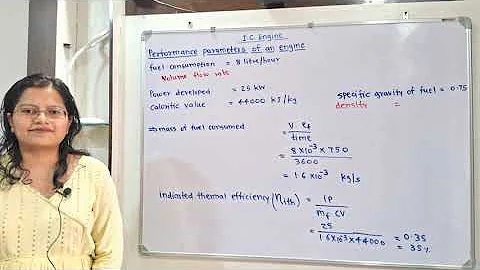 I.C. Engine
Performance parameters of an engine
fuel consumption = 8 litre/hour
Volume flow rate
Power developed = 25 kW
Calorific value = 44000 KJ/kg
specific gravity of fuel = 0.75
density =
⇒ mass of fuel consumed = V ρf / time
= 8 × 10⁻³ × 750 / 3600
= 1.6 × 10⁻³ kg/s
Indicated thermal efficiency (ηith) = IP / mf CV
= 25 / 1.6 × 10⁻³ × 44000 = 0.35
= 35 %